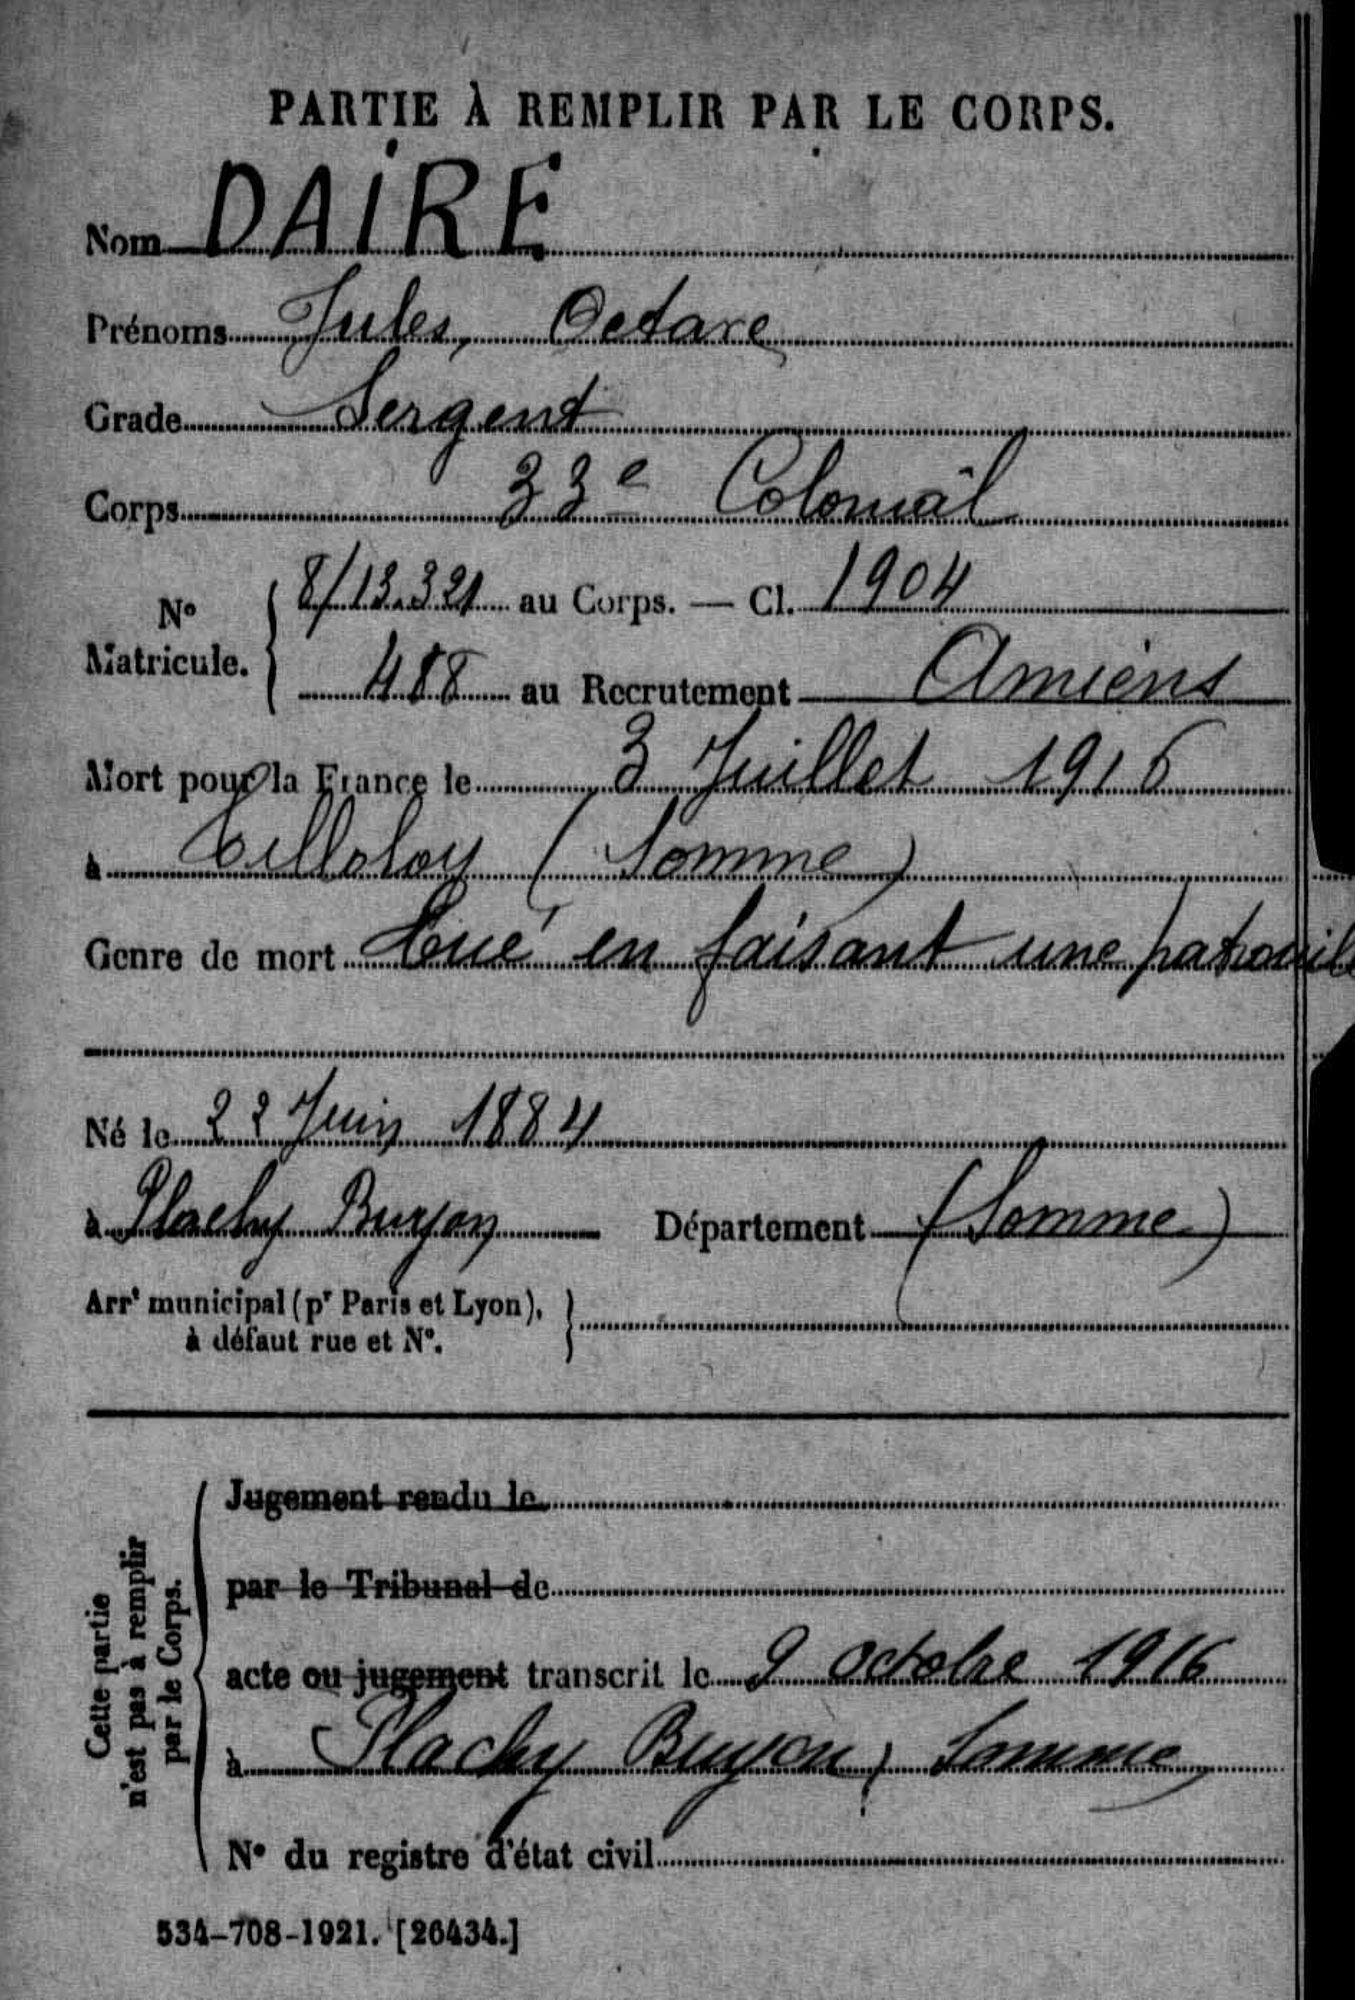 PARTIE À REMPLIR PAR LE CORPS.
Nom DAIRE
Prénoms Jules, Octave
Grade Sergent
Corps 33e Colonial
N° Matricule. 8/13.321 au Corps. — Cl. 1904
488 au Recrutement Amiens
Mort pour la France le 3 Juillet 1916
à Tilloloy (Somme)
Genre de mort Tué en faisant une patrouil
Né le 22 Juin 1884
à Plachy Buyon Département (Somme)
Arrt municipal (pr Paris et Lyon),
à défaut rue et N°.
Cette partie
n'est pas à remplir
par le Corps.
Jugement rendu le
par le Tribunal de
acte ou jugement transcrit le 9 octobre 1916
à Plachy Buyon, Somme
N° du registre d'état civil
534-708-1921. [26434.]